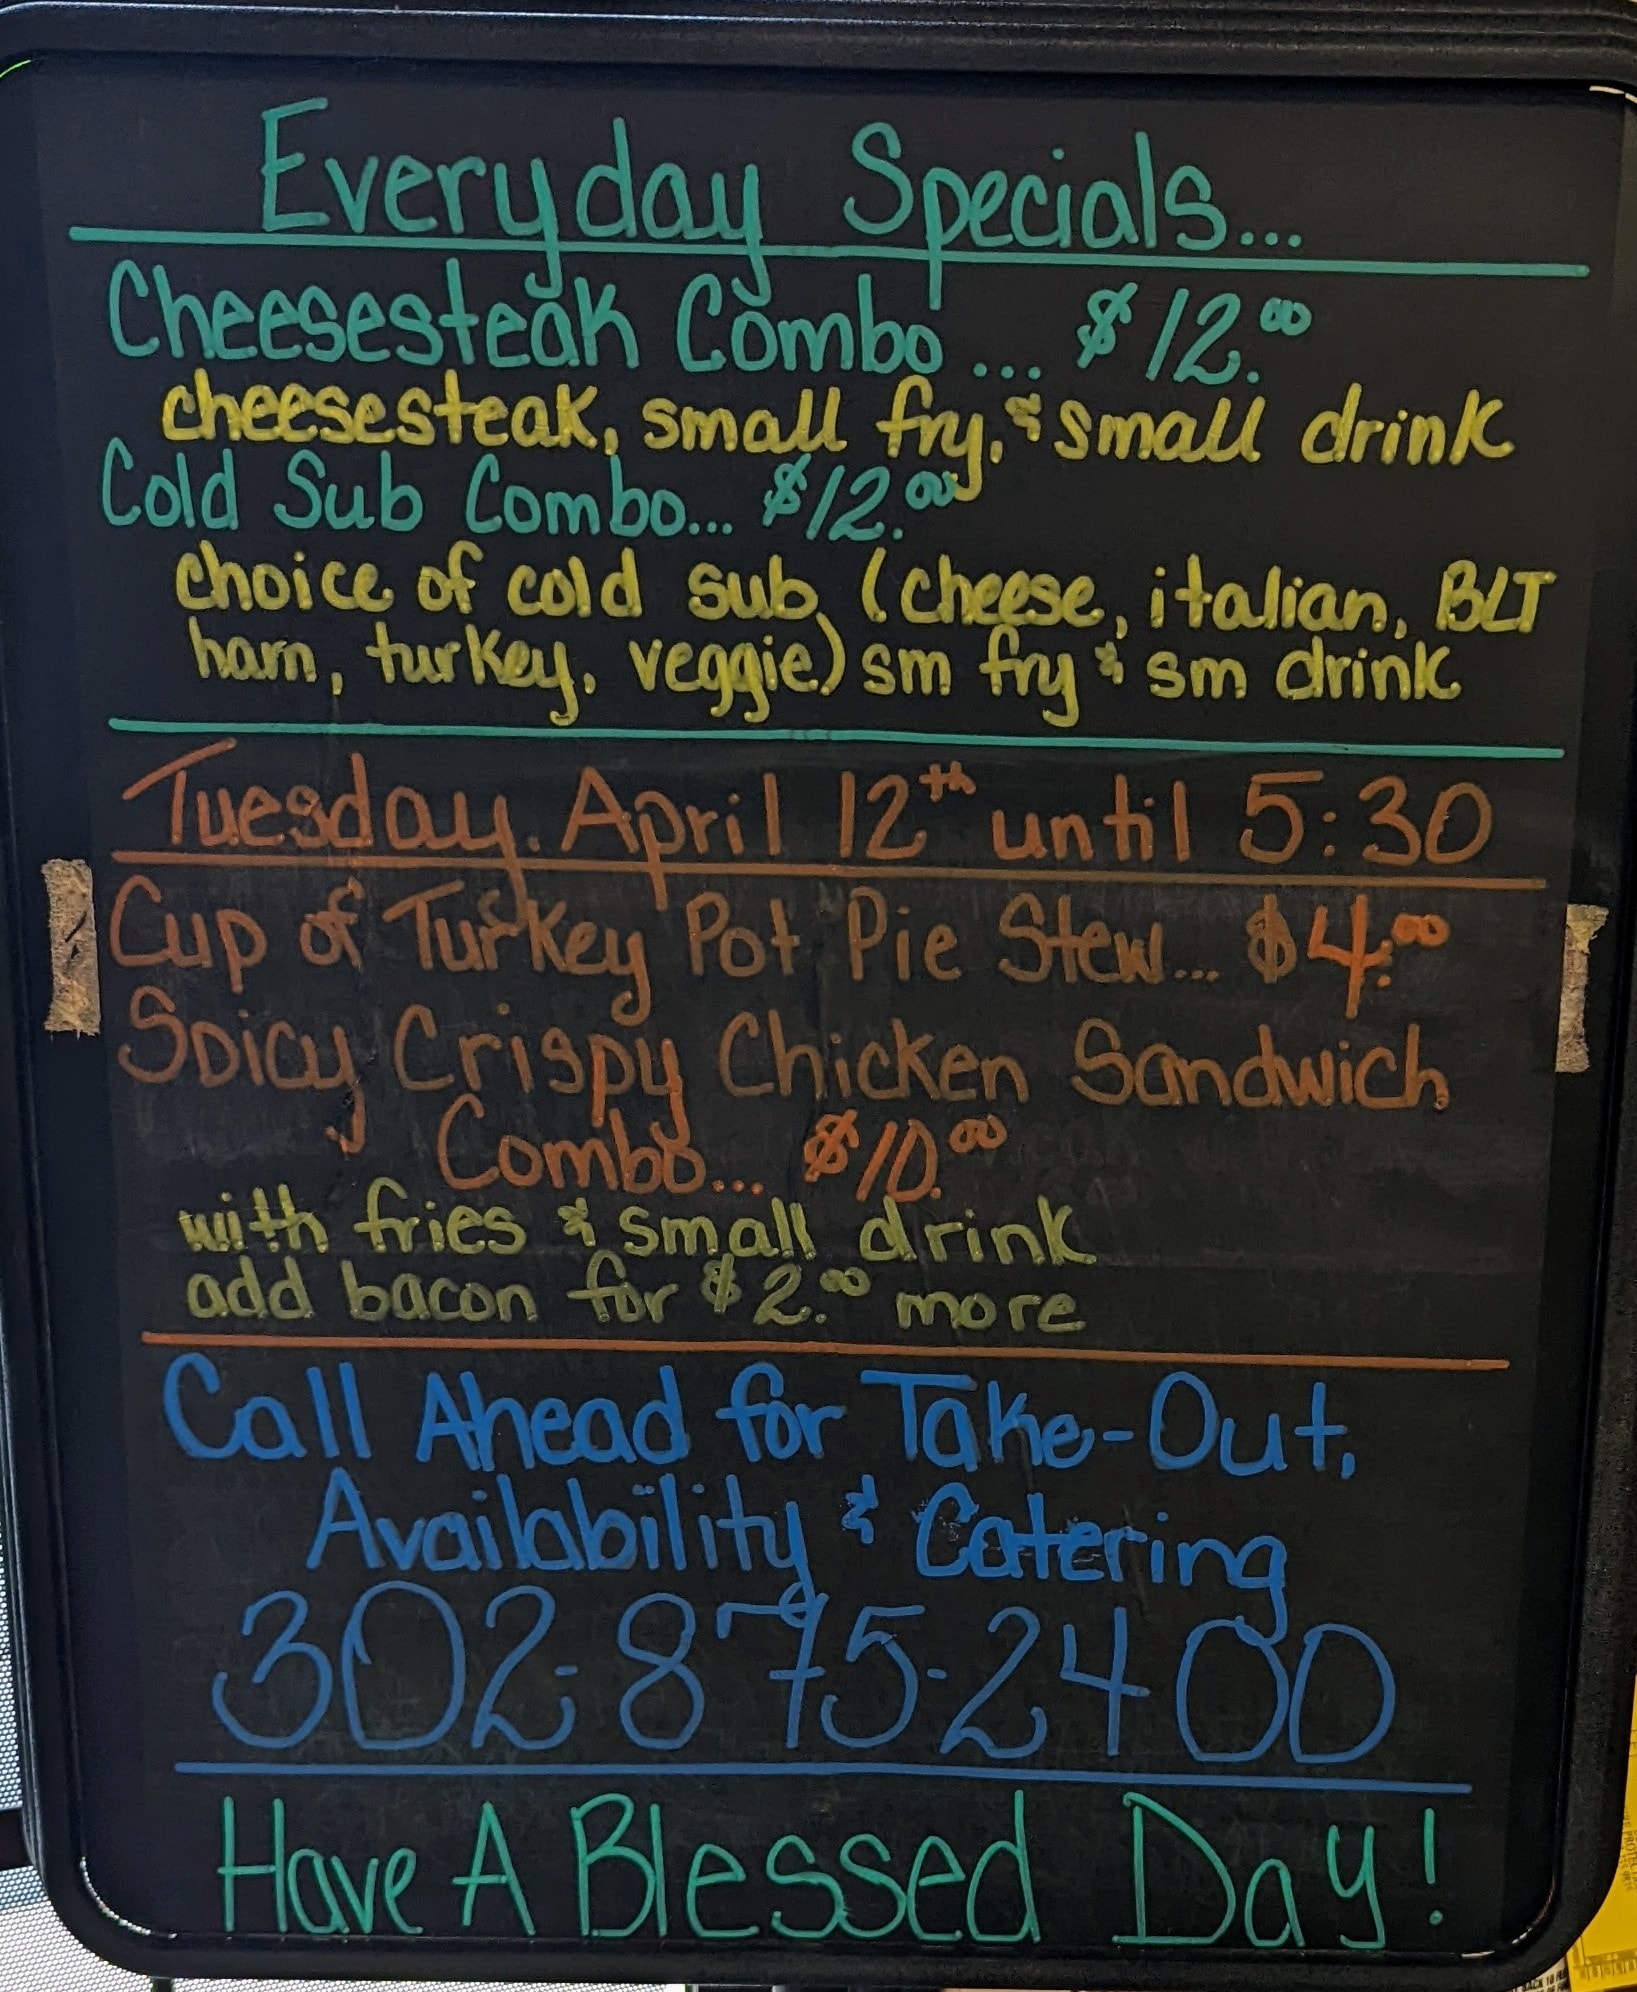 Everyday Specials...
Cheesesteak Combo... $12.00
cheesesteak, small fry, & small drink
Cold Sub Combo... $12.00
choice of cold sub (cheese, italian, BLT
ham, turkey, veggie) sm fry & sm drink
Tuesday. April 12th until 5:30
Cup of Turkey Pot Pie Stew... $4.00
Spicy Crispy Chicken Sandwich
Combo... $10.00
with fries & small drink
add bacon for $2.00 more
Call Ahead for Take-Out,
Availability & Catering
302-875-2400
Have A Blessed Day!